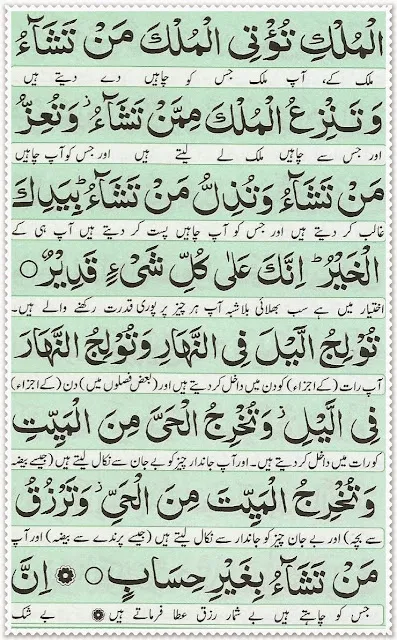 الْمُلْكِ تُؤْتِى الْمُلْكَ مَنْ تَشَآءُ
ملک کے، آپ ملک جس کو چاہیں دے دیتے ہیں
وَتَنْزِعُ الْمُلْكَ مِمَّنْ تَشَآءُ ۫ وَتُعِزُّ
اور جس سے چاہیں ملک لے لیتے ہیں اور جس کو آپ چاہیں
مَنْ تَشَآءُ وَتُذِلُّ مَنْ تَشَآءُ ؕ بِيَدِكَ
غالب کر دیتے ہیں اور جس کو آپ چاہیں پست کر دیتے ہیں آپ ہی کے
الْخَيْرُ ؕ اِنَّكَ عَلٰى كُلِّ شَىْءٍ قَدِيْرٌ ○
اختیار میں ہے سب بھلائی بلاشبہ آپ ہر چیز پر پوری قدرت رکھنے والے ہیں۔
تُوْلِجُ الَّيْلَ فِى النَّهَارِ وَتُوْلِجُ النَّهَارَ
آپ رات (کے اجزاء) کو دن میں داخل کر دیتے ہیں اور (بعض فصلوں میں) دن (کے اجزاء)
فِى الَّيْلِ ۫ وَتُخْرِجُ الْحَىَّ مِنَ الْمَيِّتِ
کو رات میں داخل کر دیتے ہیں۔ اور آپ جاندار چیز کو بے جان سے نکال لیتے ہیں (جیسے بیضہ
وَتُخْرِجُ الْمَيِّتَ مِنَ الْحَىِّ ۫ وَتَرْزُقُ
سے بچہ) اور بے جان چیز کو جاندار سے نکال لیتے ہیں (جیسے پرندے سے بیضہ) اور آپ
مَنْ تَشَآءُ بِغَيْرِ حِسَابٍ ○ ۞ اِنَّ
جس کو چاہتے ہیں بے شمار رزق عطا فرماتے ہیں ۞ بے شک